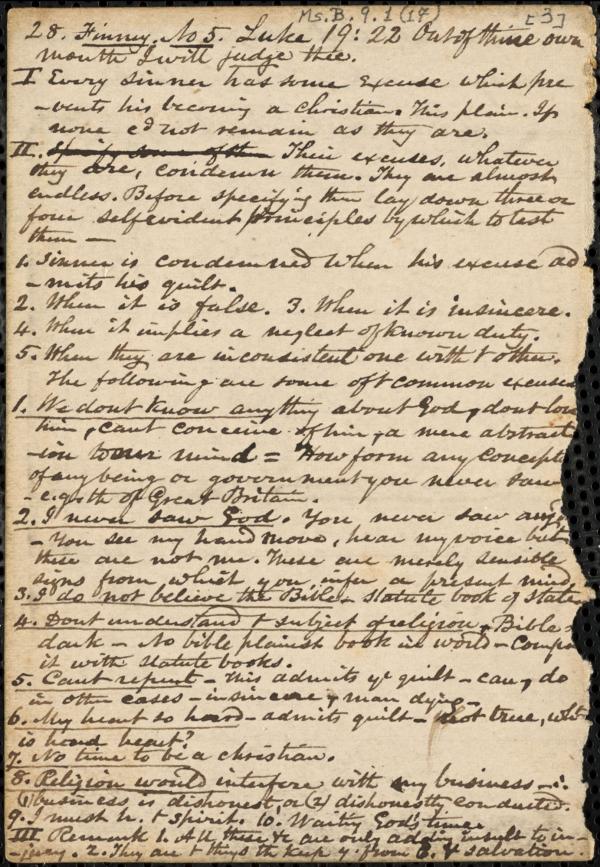 Ms. B. 9. 1 (17) [3]
28. Finney. No 5. Luke 19: 22 Out of thine own
mouth I will judge thee.
I Every sinner has some Excuse which pre
-vents his becoming a christian. This plain. If
none cd not remain as they are.
II. Specify some of them Their excuses, whatever
they are, condemn them. They are almost
endless. Before specifying them lay down three or
four selfevident principles by which to test
them —
1. Sinner is condemned when his excuse ad
-mits his guilt.
2. When it is false. 3. When it is insincere.
4. When it implies a neglect of known duty.
5. When they are inconsistent one with t other.
The following are some of t common excuses
1. We dont know anything about God, dont love
him, cant conceive of him, a mere abstract
-ion to our mind = How form any concept
of any being or government you never saw
- e.g. th of Great Britain.
2. I never saw God. You never saw any
- You see my hand move, hear my voice but
these are not me. These are merely sensible
signs from which you infer a present mind,
3. I do not believe the Bible - statute book of state
4. Dont understand t subject of religion, Bible
dark - No bible plainest book in world - Compa
it with statute books.
5. Cant repent - This admits yr guilt - can, do
in other cases - insincere, man dying -
6. My heart so hard - admits guilt - Not true, wht
is hard heart?
7. No time to be a christian.
8. Religion would interfere with my business - ∴
(1) business is dishonest, or (2) dishonestly conducted.
9. I must h. t spirit. 10. Waiting God's time
III Remark 1. All these &c are only adding insult to in-
-jury. 2. They are t things th keep y from G. & salvation.